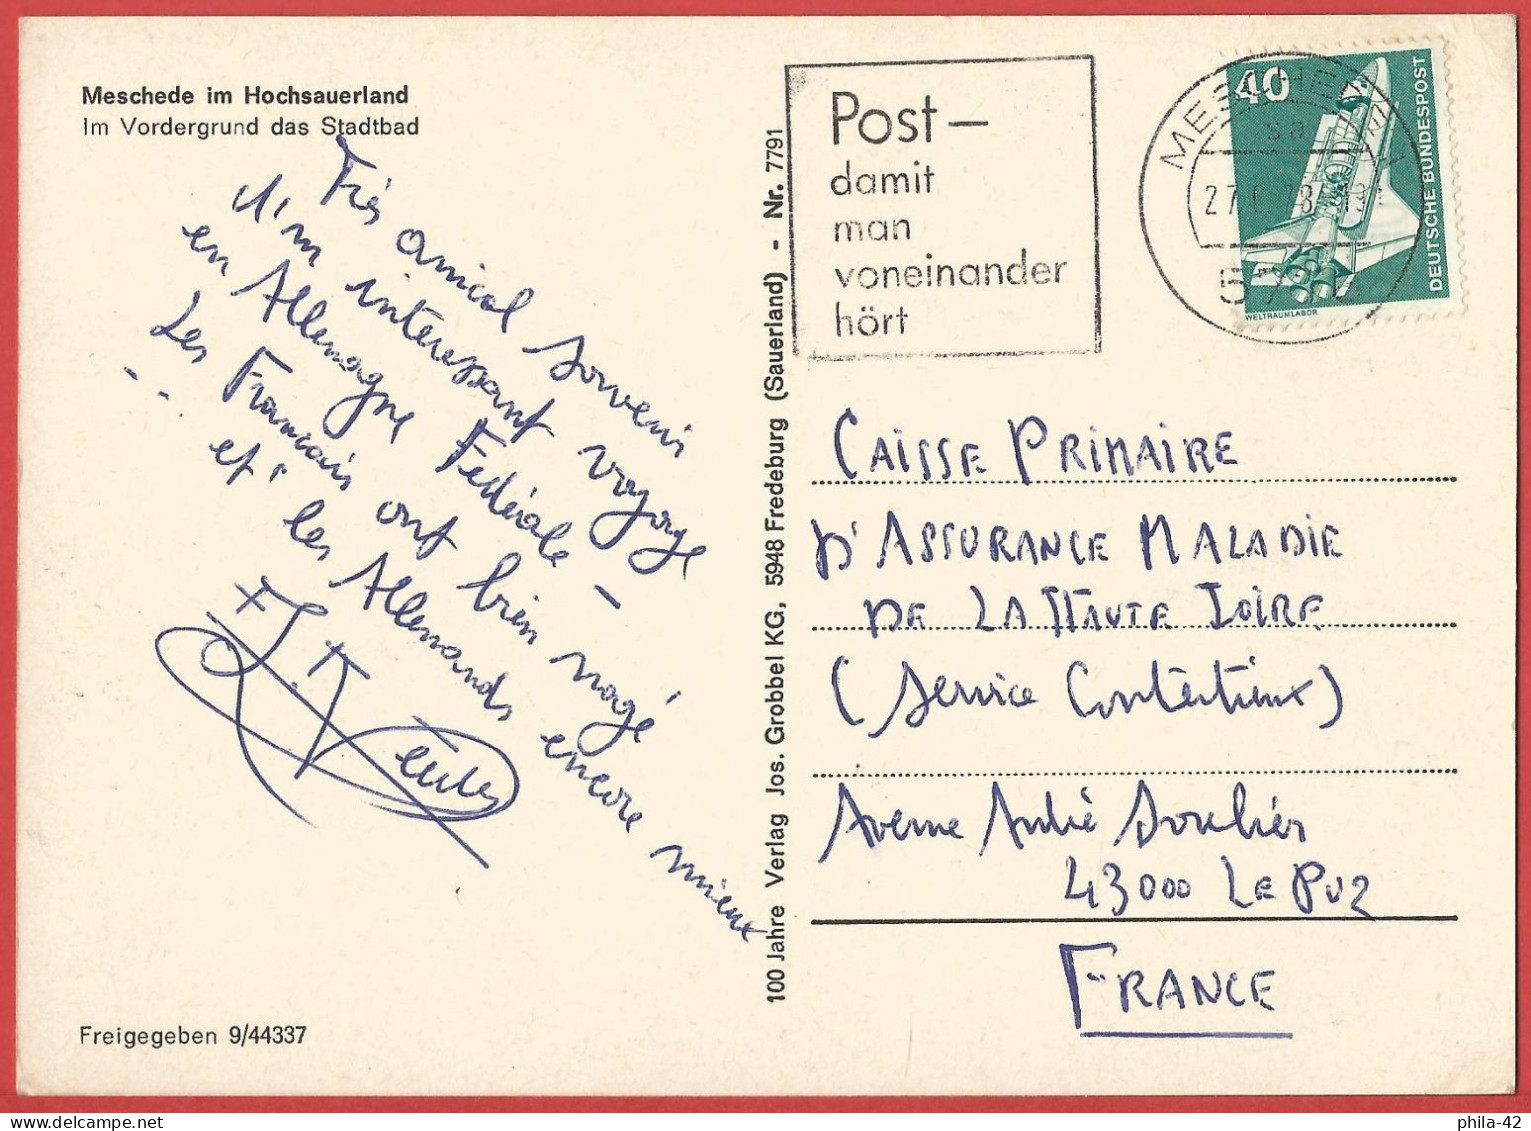 Meschede im Hochsauerland
Im Vordergrund das Stadtbad
Très amical souvenir
d'un interessant voyage
en Allemagne Fédérale -
Les Français ont bien nagé
... et les Allemands encore mieux
Freigegeben 9/44337
100 Jahre Verlag Jos. Grobbel KG, 5948 Fredeburg (Sauerland) - Nr. 7791
Post-
damit
man
voneinander
hört
MESCHEDE 1
sa
27.
40
DEUTSCHE BUNDESPOST
WELTRAUMLABOR
CAISSE PRIMAIRE
D'ASSURANCE MALADIE
DE LA HAUTE LOIRE
(Service Contentieux)
Avenue André Soulier
43000 LE PUY
FRANCE
phila-42